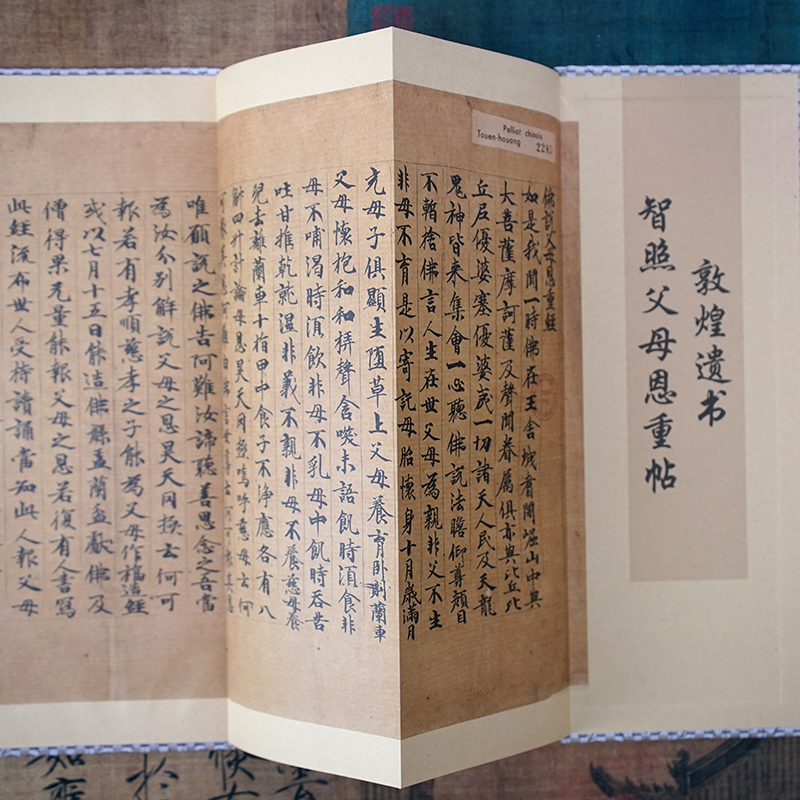 敦煌遗书
智照父母恩重帖
Pelliot chinois
Touen-houang
2285
佛說父母恩重經
如是我聞一時佛在王舍城耆闍崛山中與
大菩薩摩訶薩及聲聞眷屬俱亦與比丘比
丘尼優婆塞優婆夷一切諸天人民及天龍
鬼神皆來集會一心聽佛說法瞻仰尊顏目
不暫捨佛言人生在世父母為親非父不生
非母不育是以寄託母胎懷身十月歲滿月
充母子俱顯生墮草上父母養育臥則蘭車
父母懷抱和和弄聲含咲未語飢時湏食非
母不哺渴時湏飲非母不乳母中飢時吞苦
吐甘推乾就濕非義不親非母不養慈母養
兒去離蘭車十指甲中食子不淨應各有八
斛四斗計論母恩昊天罔極嗚呼慈母云何
唯願說之佛告阿難汝諦聽善思念之吾當
為汝分別解說父母之恩昊天罔極云何可
報若有孝順慈孝之子能為父母作福造經
或以七月十五日能造佛槃盂蘭盆獻佛及
僧得果无量能報父母之恩若復有人書寫
此經流布世人受持讀誦當知此人報父母